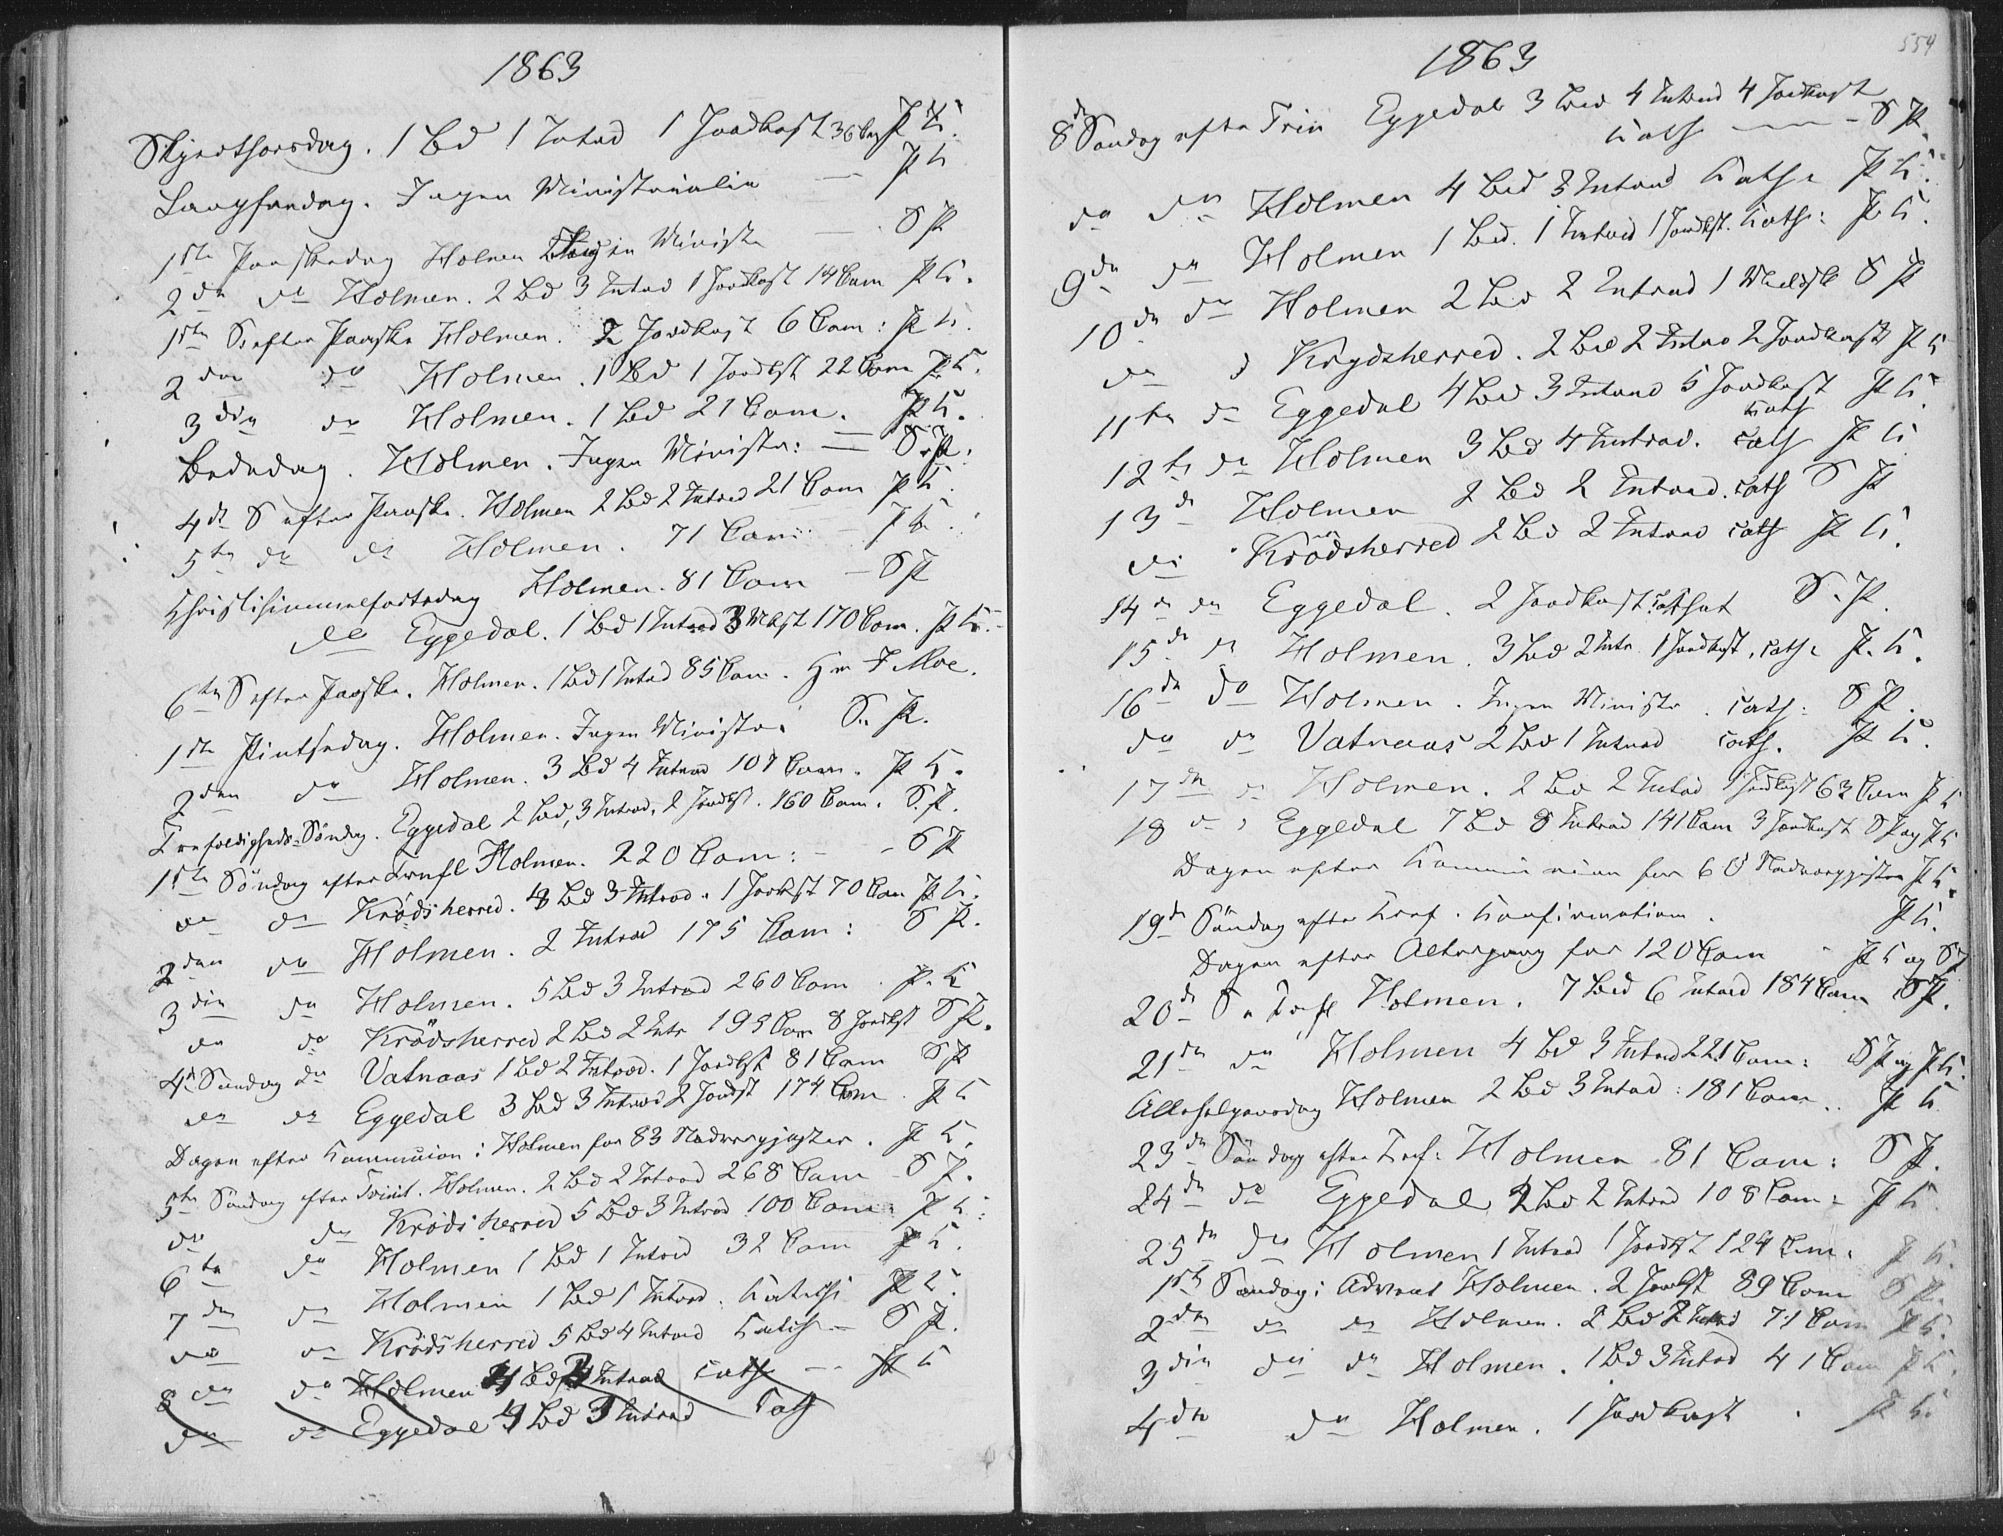 1863
Skjærthorsdag. 1 Bd 1 Introd 1 Jordkast 36 Com P K.
Langfredag. Ingen Ministerialia — P K
1ste Paaskedag Holmen Ingen Ministe — S P
2den do Holmen. 2 Bd 3 Introd 1 Jordkast 14 Com P K.
1ste S. efter Paaske Holmen. 2 Jordkast 6 Com: P K.
2den do Holmen. 1 Bd 1 Jordkst 22 Com P K.
3die do Holmen. 1 Bd 21 Com. P K.
Bededag. Holmen. Ingen Ministe: — S. P.
4de S efter Paaske. Holmen 2 Bd 2 Introd 21 Com P K.
5te do do Holmen. 71 Com: — P K.
Christihimmelfartsdag Holmen. 81 Com — S P
do Eggedal. 1 Bd 1 Introd 3 170 Com. P K.
6te S efter Paaske. Holmen. 1 Bd 1 Introd 85 Com. Hr J Moe.
1ste Pintsedag. Holmen. Ingen Ministe: S. P.
2den do Holmen. 3 Bd 4 Introd 107 Com. P K.
Trefoldigheds-Söndag. Eggedal 2 Bd, 3 Introd, 2 Jordkst. 160 Com. S. P.
1ste Söndag efter Trefl Holmen. 220 Com: - - S P
do do Krödsherred. 8 Bd 3 Introd. 1 Jordkst 70 Com P K.
2den do Holmen. 2 Introd 175 Com: S P.
3die do Holmen. 5 Bd 3 Introd 260 Com. P. K
do do Krödsherred 2 Bd 2 Intr 195 Com 8 Jordkst S P.
4de Söndag do Vatnaas 1 Bd 2 Introd. 1 Jordkst 81 Com S P
do do Eggedal 3 Bd 3 Introd 2 Jordkst 174 Com. P K
Dagen efter Kommunion i Holmen for 83 Nadvergjæster. P K.
5te Söndag efter Trinit. Holmen. 2 Bd 2 Introd 268 Com S P.
do do Krödsherred 5 Bd 3 Introd 100 Com: P K:
6te do Holmen 1 Bd 1 Introd 32 Com P K.
7de do Holmen 1 Bd 1 Introd. Katech P K.
do do Krödsherred 5 Bd 4 Introd Katech — S P.
8de do Holmen 4 Bd 3 Introd Cath — P K
do do Eggedal 4 Bd 3 Introd Cath
1863
554
8de Söndag efter Trin Eggedal 3 Bd 4 Introd 4 Jordkast
Kath — S P.
do do Holmen 4 Bd 3 Introd Kath: P K.
9de do Holmen 1 Bd. 1 Introd 1 Jordkst. Kath: P K.
10de do Holmen 2 Bd 2 Introd 1 S P
do d Krydsherred. 2 Bd 2 Introd 2 Jordkast P K
11te do Eggedal 4 Bd 3 Introd 5 Jordkast P K
Kath
12te do Holmen 3 Bd 4 Introd. Cath P K
13de Holmen 2 Bd 2 Introd. Cath S P
do Krödsherred 2 Bd 2 Introd Cath P K.
14de do Eggedal. 2 Jordkast S. P.
15de do Holmen. 3 Bd 2 Intr. 1 Jordkast, Cath: P. K.
16de do Holmen. Ingen Ministe. Cath: S P.
do do Vatnaas 2 Bd 1 Introd Cath. P K.
17de do Holmen. 2 Bd 2 Introd 1 Jordkast 62 Com P K
18de d Eggedal 7 Bd 8 Introd 141 Com 3 Jordkast S P og P K
Dagen efter Kommunion for 60 Nadvergjæster P K.
19de Söndag efter Tref. Konfirmation. P K.
Dagen efter Altergang for 120 Com - P K og S P
20de S e Trefl Holmen. 7 Bd 6 Introd 184 Com S P.
21de do Holmen 4 Bd 3 Introd 221 Com: S P og P K.
Allehelgensdag Holmen 2 Bd 3 Introd: 181 Com.. P K
23de Söndag efter Tref: Holmen 81 Com: S P.
24de do Eggedal 2 Bd 2 Introd 108 Com: P K
25de do Holmen 1 Introd 1 Jordkst 124 Com. P K.
1ste Söndag i Advent Holmen. 2 Jordkst 89 Com S P.
2den do do Holmen. 2 Bd 2 Introd 71 Com P K.
3die do do Holmen. 1 Bd 3 Introd 41 Com P K.
4de do Holmen. 1 Jordkast. P K.